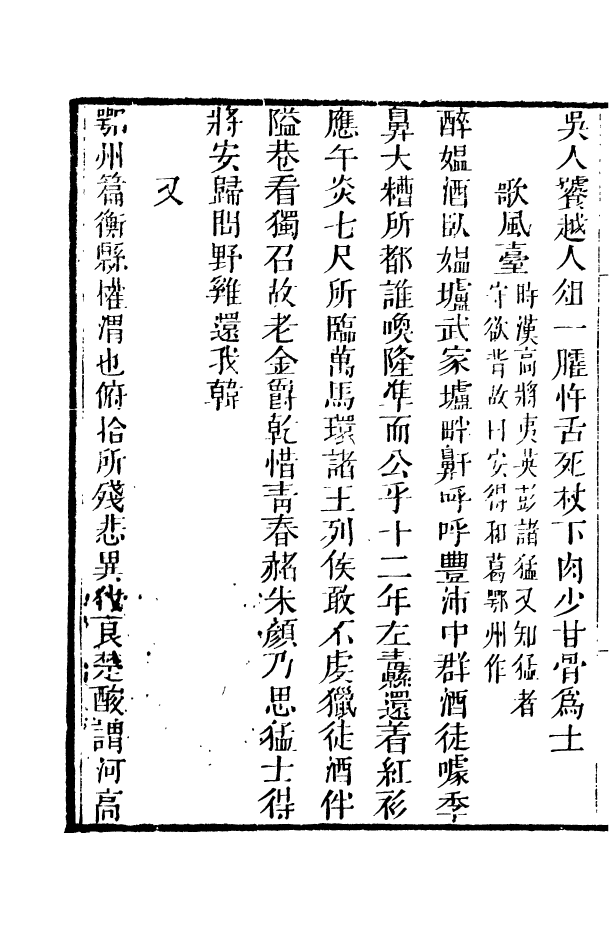 吳人饕越人俎一臛忤舌死杖下肉少甘骨爲士
歌風臺
時漢高將夷英彭諸猛又知猛者
守欲背故曰安得和葛鄂州作
醉媼酒臥媼壚武家壚畔鼾呼呼豐沛中群酒徒噱季
鼻大糟所都誰喚隆凖而公乎十二年左纛還着紅衫
應午炎七尺所臨萬馬環諸王列侯敢不虔獵徒酒伴
隘巷看獨召故老金爵乾惜靑春赭朱顏乃思猛士得
將安歸問野雞還我韓
又
鄂州篇衡縣權渭也俯拾所殘悲異代良楚酸謂河高